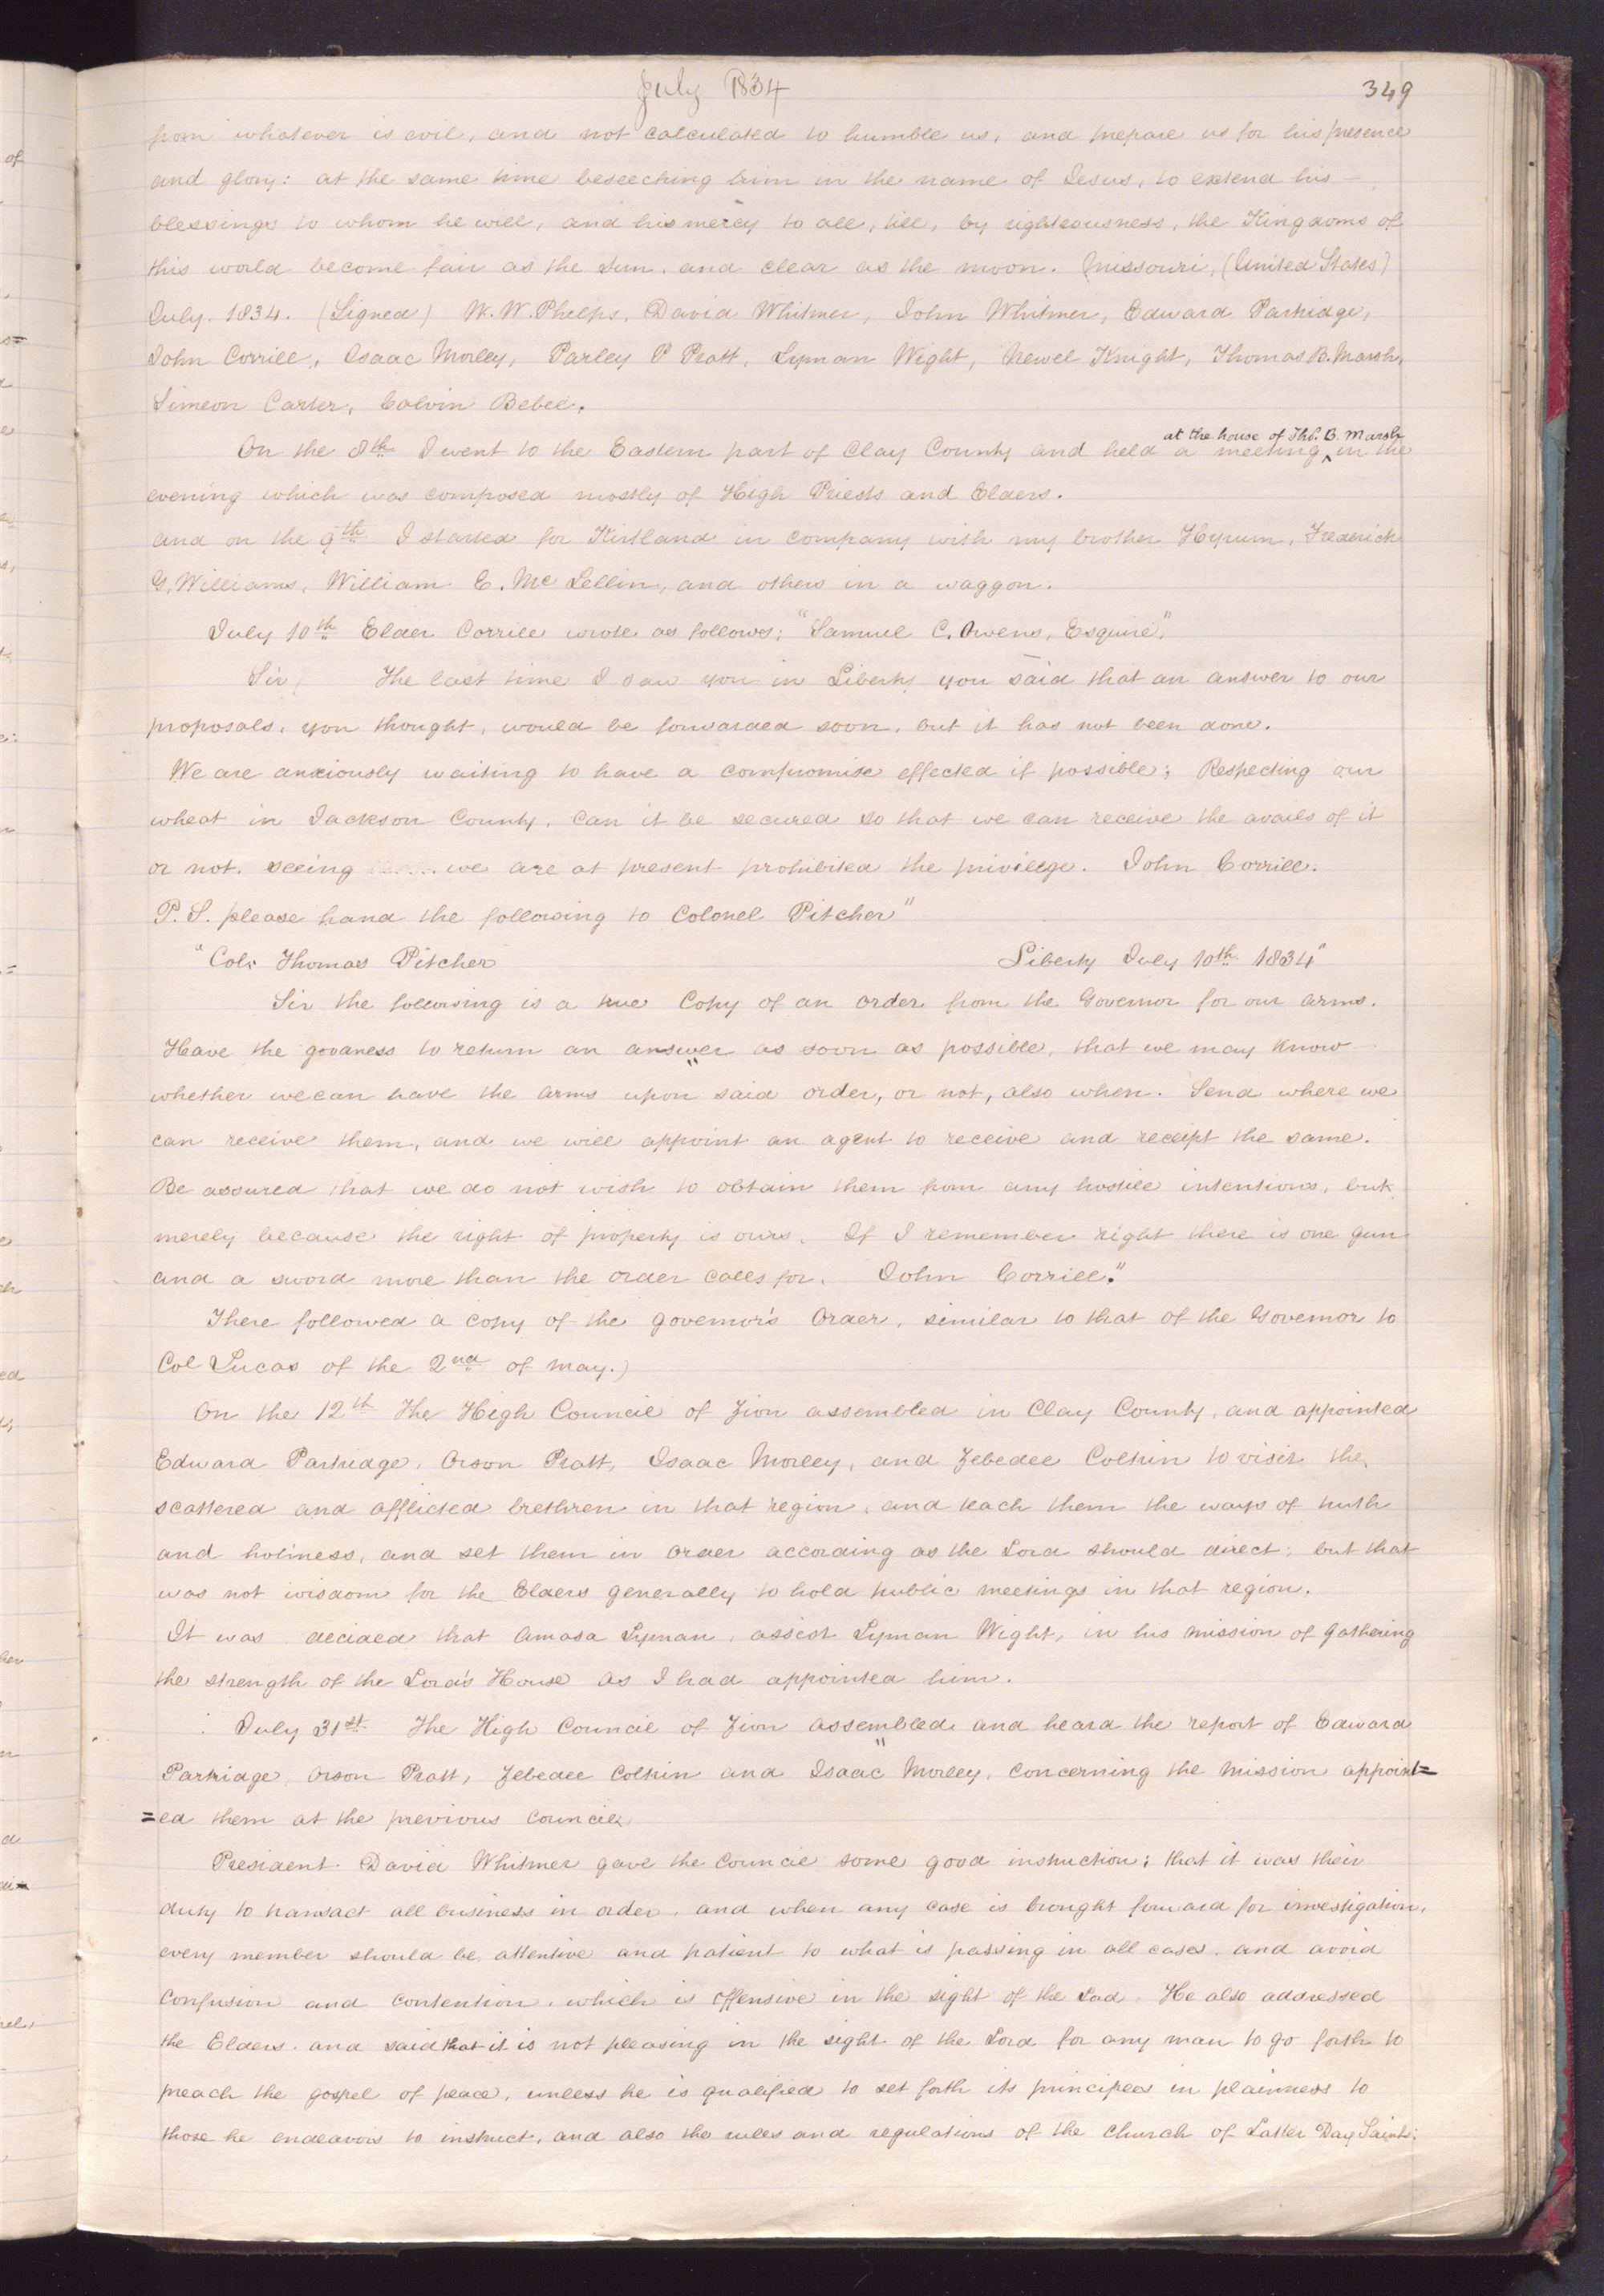 July 1834
349
from whatever is evil, and not calculated to humble us, and prepare us for his presence
and glory: at the same time beseeching him in the name of Jesus, to extend his
blessings to whom he will, and his mercy to all, till, by righteousness, the Kingdoms of
this world become fair as the Sun, and clear as the moon. Missouri, (United States)
July. 1834. (Signed) W. W. Phelps, David Whitmer, John Whitmer, Edward Partridge,
John Corrill, Isaac Morley, Parley P Pratt, Lyman Wight, Newel Knight, Thomas B. Marsh,
Simeon Carter, Calvin Bebee.
at the house of Thos. B. Marsh
On the 8th I went to the Eastern part of Clay County and held a meeting ‸ in the
evening which was composed mostly of High Priests and Elders.
and on the 9th I started for Kirtland in company with my brother Hyrum, Frederick
G. Williams, William E. Mc Lellin, and others in a waggon.
July 10th Elder Corrill wrote as follows; "Samuel C. Owens, Esquire".
Sir, The last time I saw you in Liberty you said that an answer to our
proposals, you thought, would be forwarded soon, but it has not been done.
We are anxiously waiting to have a compromise effected if possible; Respecting our
wheat in Jackson County, can it be secured so that we can receive the avails of it
or not, seeing we are at present prohibited the privilege. John Corrill.
P.S. please hand the following to Colonel Pitcher"
"Col. Thomas Pitcher Liberty July 10th 1834"
Sir the following is a true Copy of an order from the Governor for our arms.
Have the goodness to return an answer as soon as possible, that we may know
whether we can have the arms upon said order, or not, also when. Send where we
can receive them, and we will appoint an agent to receive and receipt the same.
Be assured that we do not wish to obtain them from any hostile intentions, but
merely because the right of property is ours. If I remember right there is one gun
and a sword more than the order calls for. John Corrill."
There followed a copy of the governor's Order, similar to that of the Governor to
Col Lucas of the 2nd of may.)
On the 12th The High Council of Zion assembled in Clay County, and appointed
Edward Partridge, Orson Pratt, Isaac Morley, and Zebedee Coltrin to visit the
scattered and afflicted brethren in that region, and teach them the ways of truth
and holiness, and set them in order according as the Lord should direct; but that
was not wisdom for the Elders generally to hold public meetings in that region.
It was decided that Amasa Lyman, assist Lyman Wight, in his mission of gathering
the strength of the Lord's House as I had appointed him.
July 31st The High Council of Zion assembled and heard the report of Edward
Partridge Orson Pratt, Zebedee Coltrin and Isaac Morley, concerning the mission appoint=
=ed them at the previous council.
President David Whitmer gave the council some good instruction; that it was their
duty to transact all business in order, and when any case is brought forward for investigation,
every member should be attentive and patient to what is passing in all cases, and avoid
confusion and contention, which is offensive in the sight of the Lord. He also addressed
the Elders, and said that it is not pleasing in the sight of the Lord for any man to go forth to
preach the gospel of peace, unless he is qualified to set forth its principles in plainness to
those he endeavors to instruct, and also the rules and regulations of the Church of Latter Day Saints;